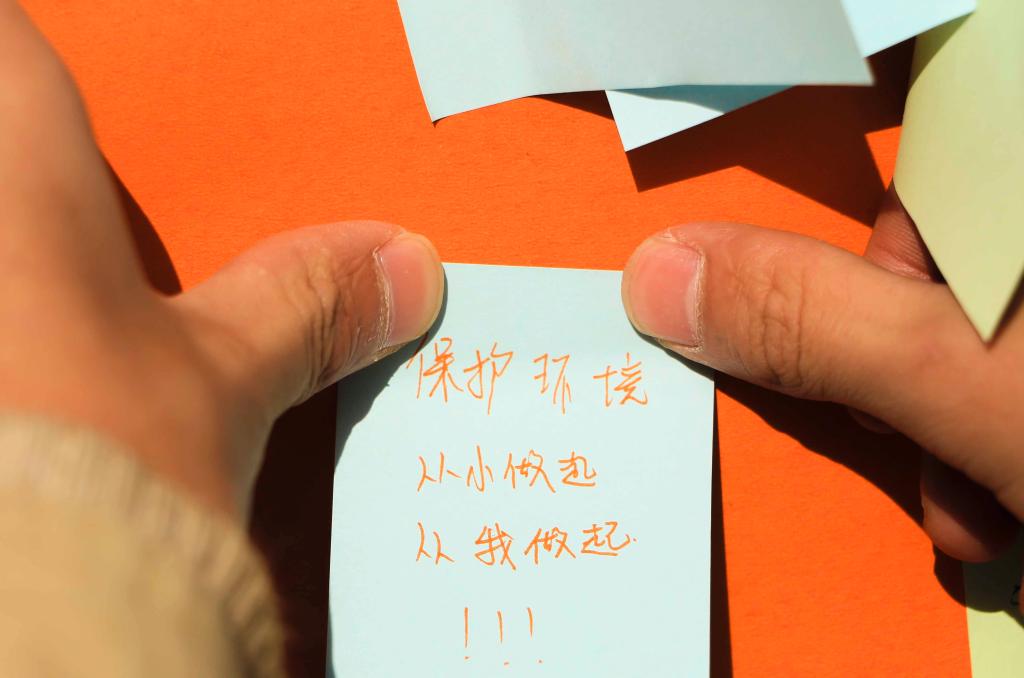 保护环境
从小做起
从我做起.
!!!